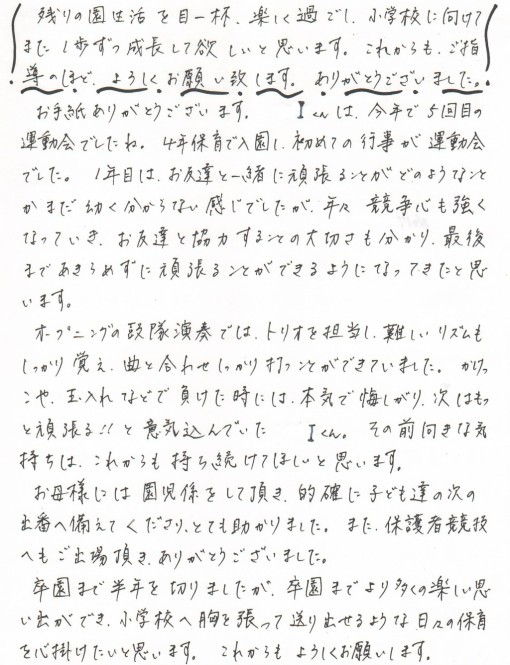 残りの園生活を目一杯、楽しく過ごし、小学校に向けて
また1歩ずつ成長して欲しいと思います。これからも、ご指
導のほど、よろしくお願い致します。ありがとうございました。
お手紙ありがとうございます。 Iくんは、今年で5回目の
運動会でしたね。4年保育で入園し、初めての行事が運動会
でした。1年目は、お友達と一緒に頑張ることがどのようなこと
かまだ幼く分からない感じでしたが、年々競争心も強く
なっていき、お友達と協力することの大切さも分かり、最後
まであきらめずに頑張ることができるようになってきたと思
います。
オープニングの鼓隊演奏では、トリオを担当し、難しいリズムも
しっかり覚え、曲と合わせしっかり打つことができていました。かけっ
こや、玉入れなどで負けた時には、本気で悔しがり、次はもっ
と頑張る!!と意気込んでいた Iくん。その前向きな気
持ちは、これからも持ち続けてほしいと思います。
お母様には園児係をして頂き、的確に子ども達の次の
出番へ備えてくださり、とても助かりました。また、保護者競技
へもご出場頂き、ありがとうございました。
卒園まで半年を切りましたが、卒園までより多くの楽しい思
い出ができ、小学校へ胸を張って送り出せるような日々の保育
を心掛けたいと思います。これからもよろしくお願いします。